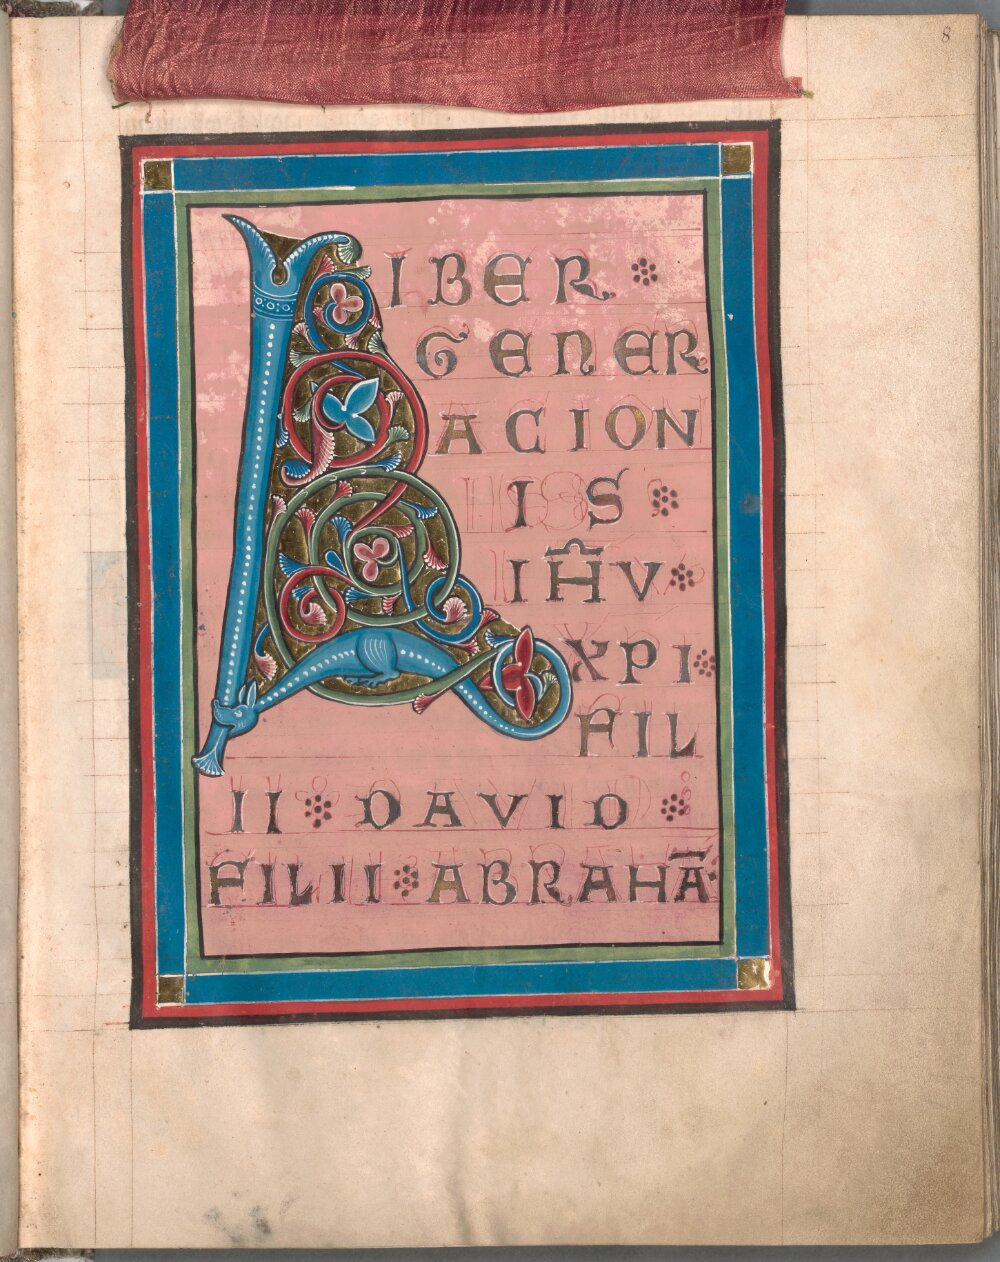 8
LIBER
GENER
ACION
IS
IH̄V
XPI
FIL
II DAVID
FILII ABRAHĀ